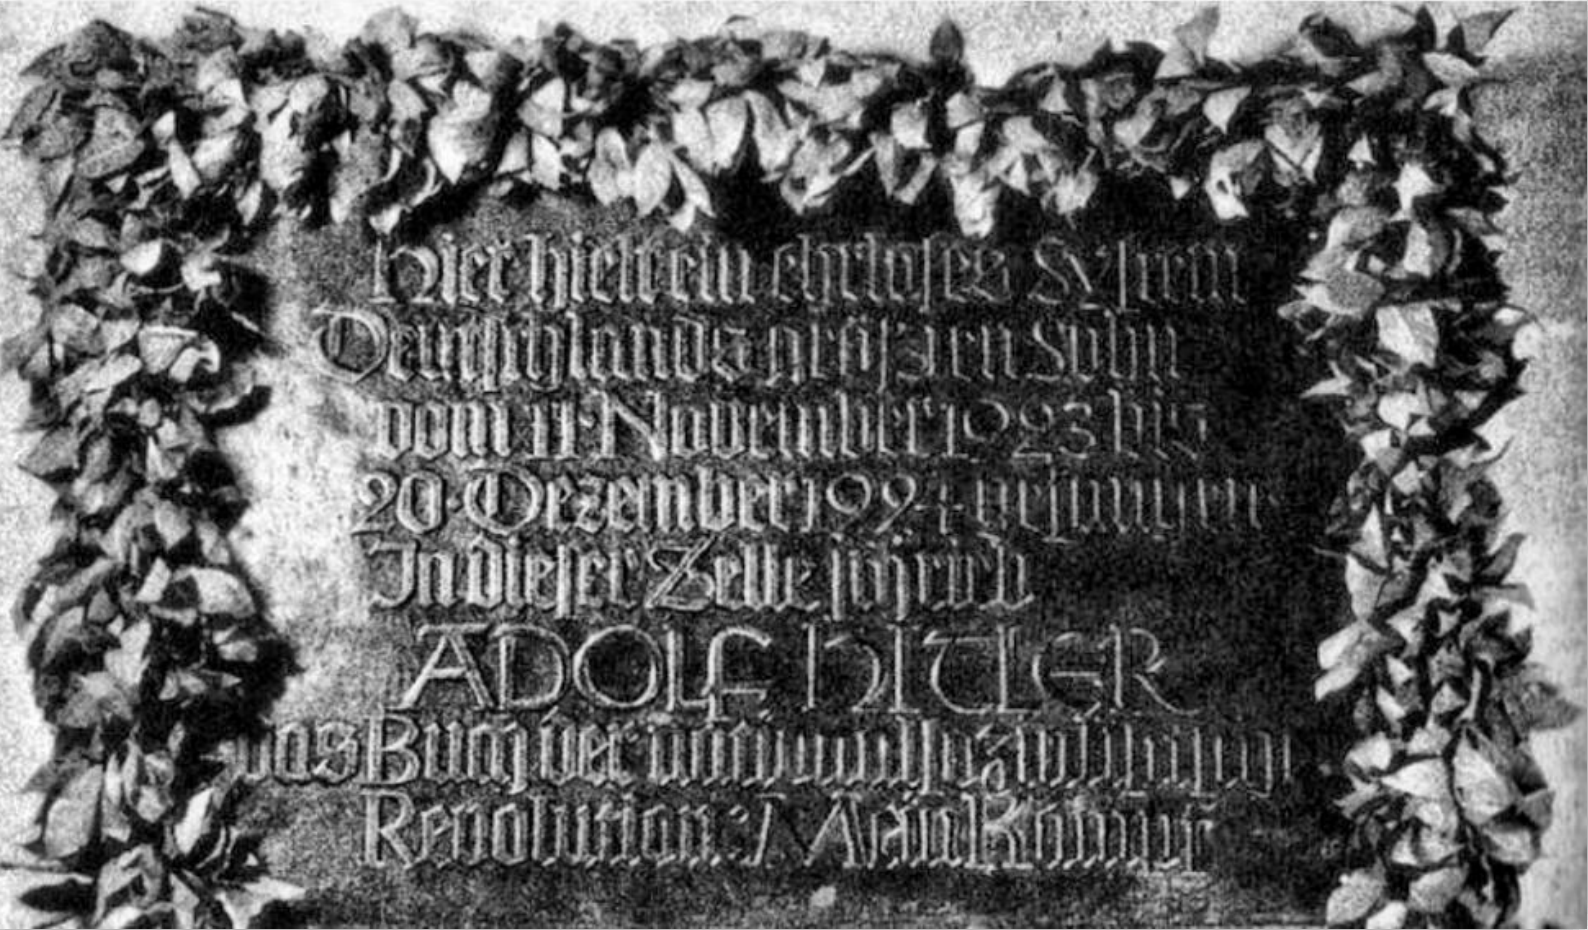 Hier hielt ein ehrloses System
Deutschlands größten Sohn
vom 11·November 1923 bis
20·Dezember 1924 gefangen
In dieser Zelle schrieb
ADOLF HITLER
das Buch der nationalsozialistischen
Revolution: Mein Kampf